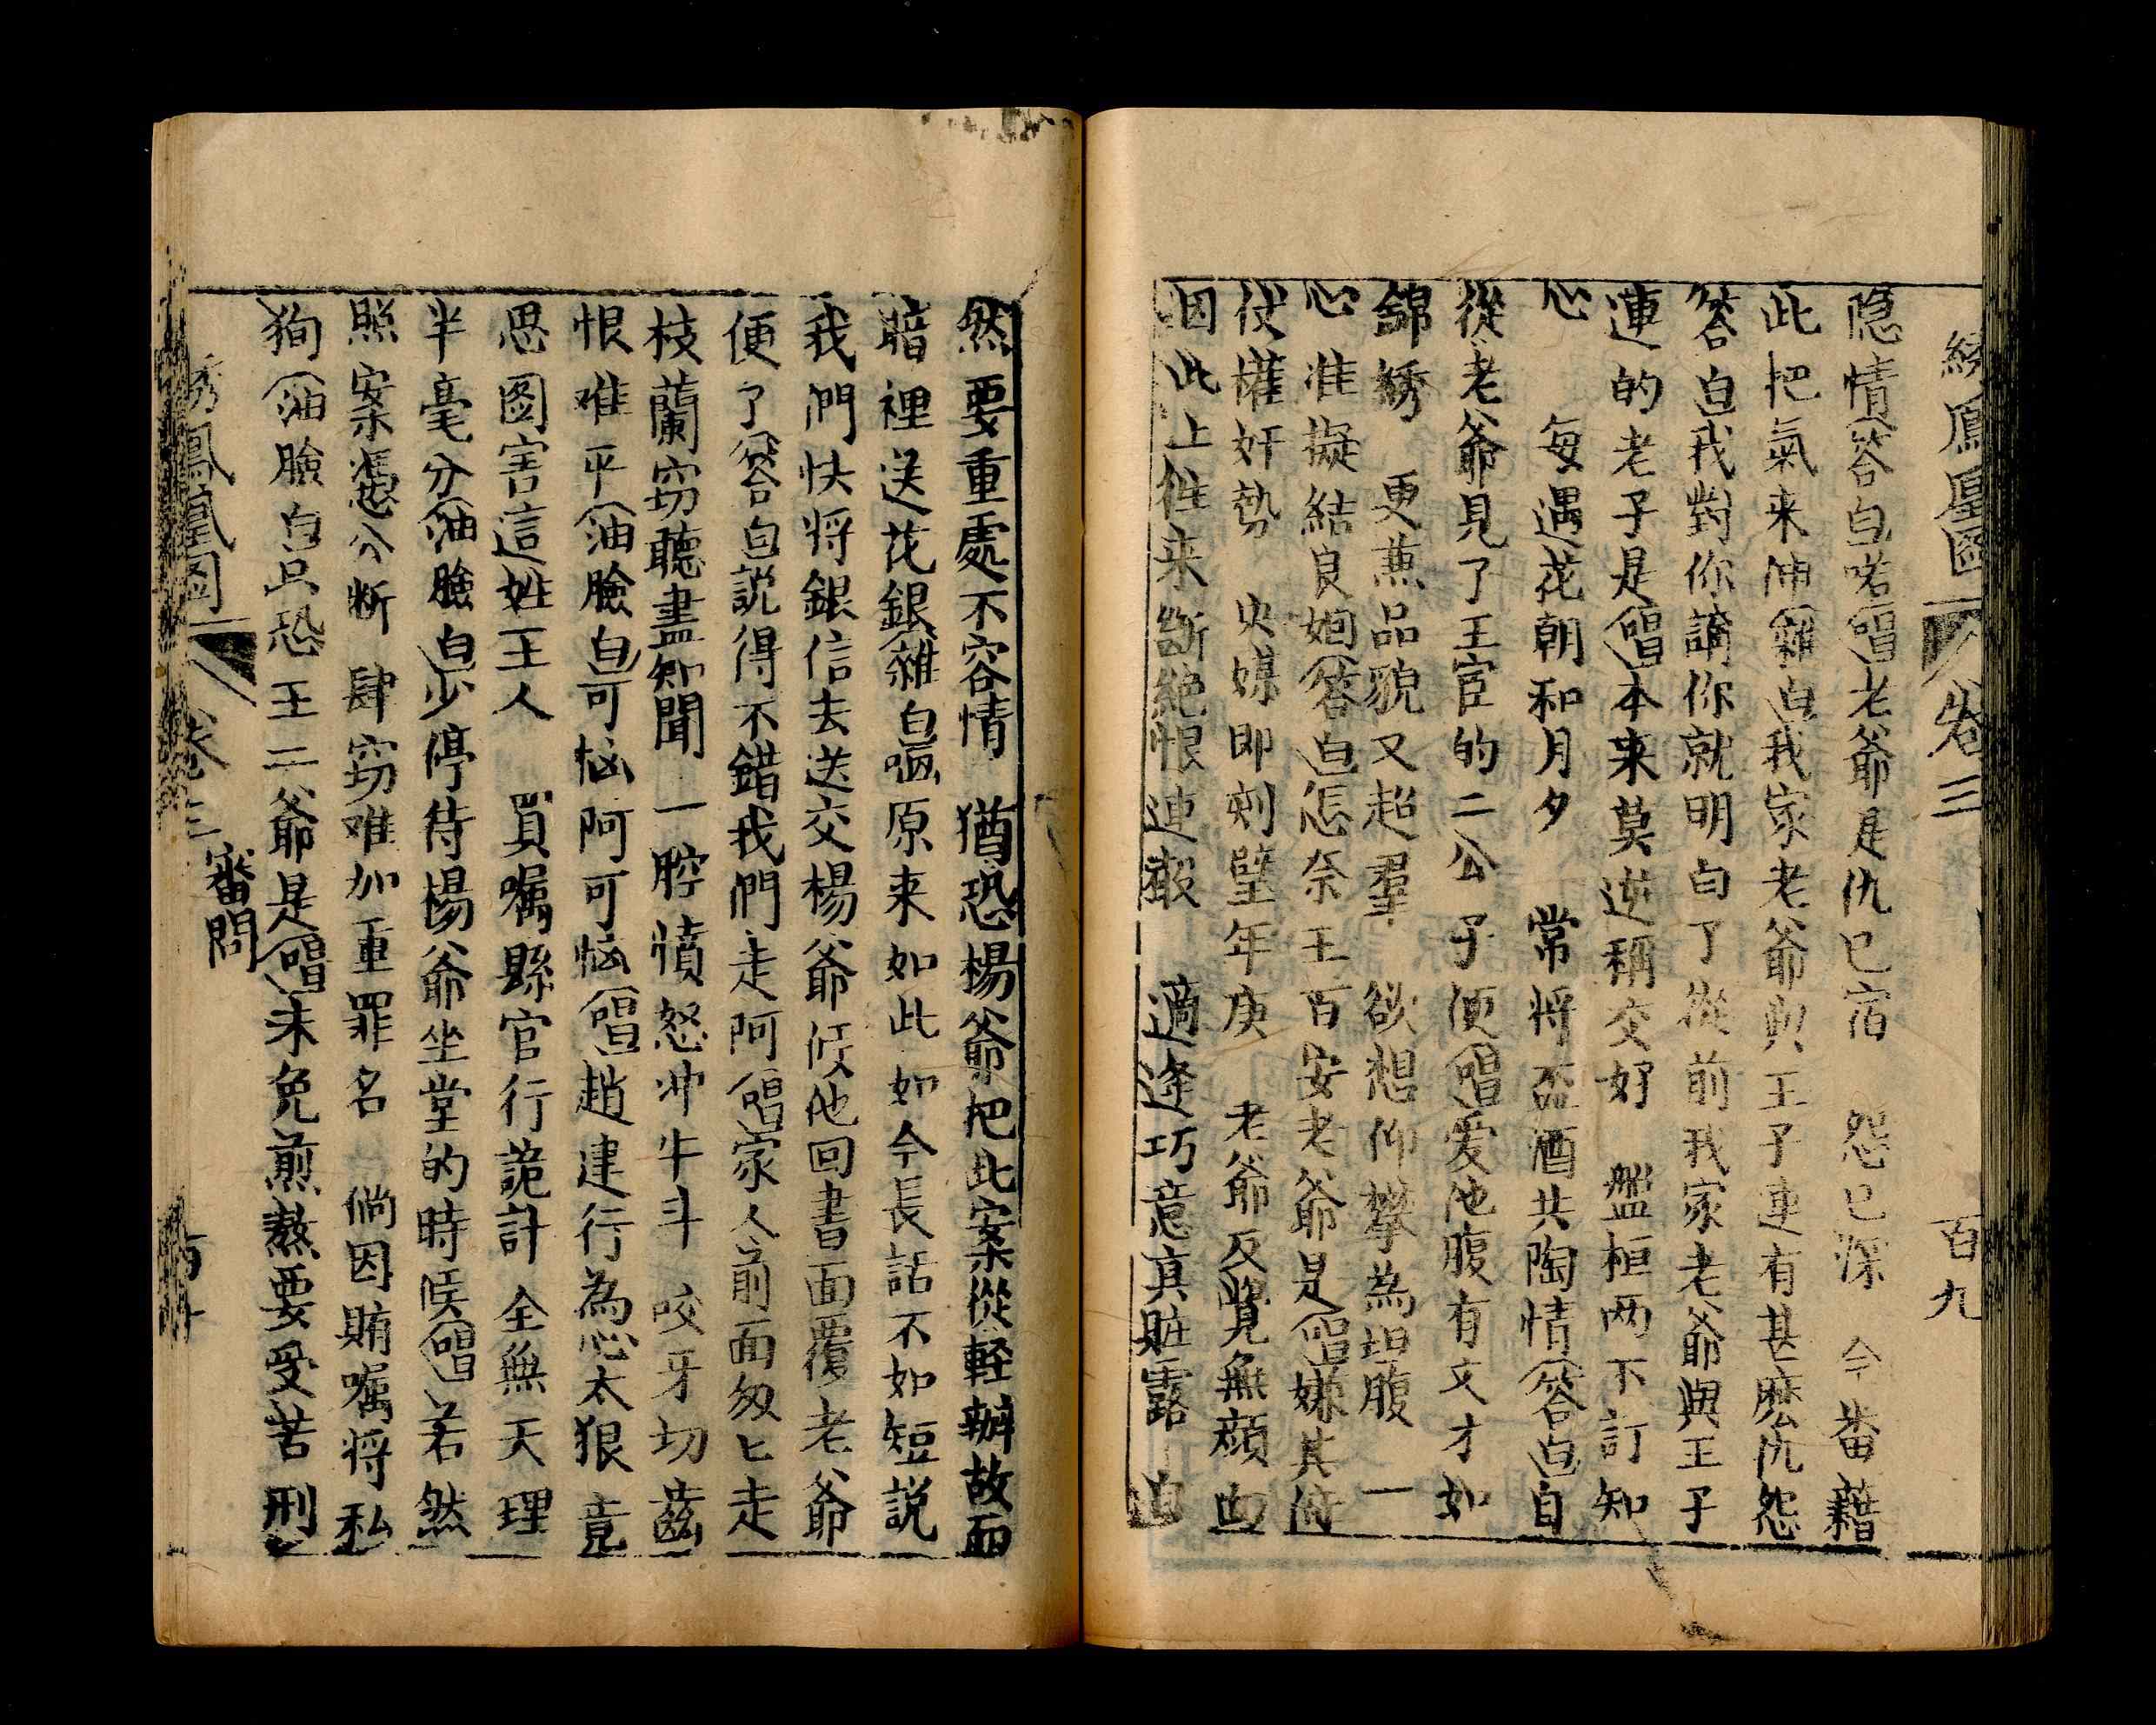 綉鳳凰圖 卷三 百九
隐情答白啱唱老爺是仇已宿 怨已深 今番藉
此把氣来伸雜白我家老爺與王子連有甚麽仇怨
答白我對你講你就明白了從前我家老爺與王子
連的老子是唱本来莫逆稱交好 盤桓两不訂知
心 每遇花朝和月夕 常将盃酒共陶情答白自
從老爺見了王宦的二公子便唱爱他腹有文才如
錦綉 更蕙品貌又超羣 欲想仰攀為坦腹 一
心准擬結良姻答白怎奈王百安老爺是唱嫌其倚
仗權奸勢 央媒即刻璧年庚 老爺反覺無顔面
因此上徃来断絶恨連赧 適逢巧意真賍露 
然要重處不容情 猶恐楊爺把此案從輕辦故而
暗裡送花銀雜白嗄原来如此如今長話不如短説
我們快将銀信去送交楊爺候他回書面覆老爺
便了答白説得不錯我們走阿唱家人前面匆匕走
枝蘭窃聽盡知聞 一腔憤怒冲牛斗 咬牙切齒
恨难平油臉白可惱阿可惱唱趙建行為心太狠 竟
思圖害這姓王人 買嘱縣官行詭計 全無天理
半毫分油臉白少停待楊爺坐堂的時候唱若然
照案憑公断 肆窃难加重罪名 倘因賄嘱将私
狥油臉白只恐王二爺是唱未免煎熬要受苦刑
綉鳳凰圖 卷三 審問 百